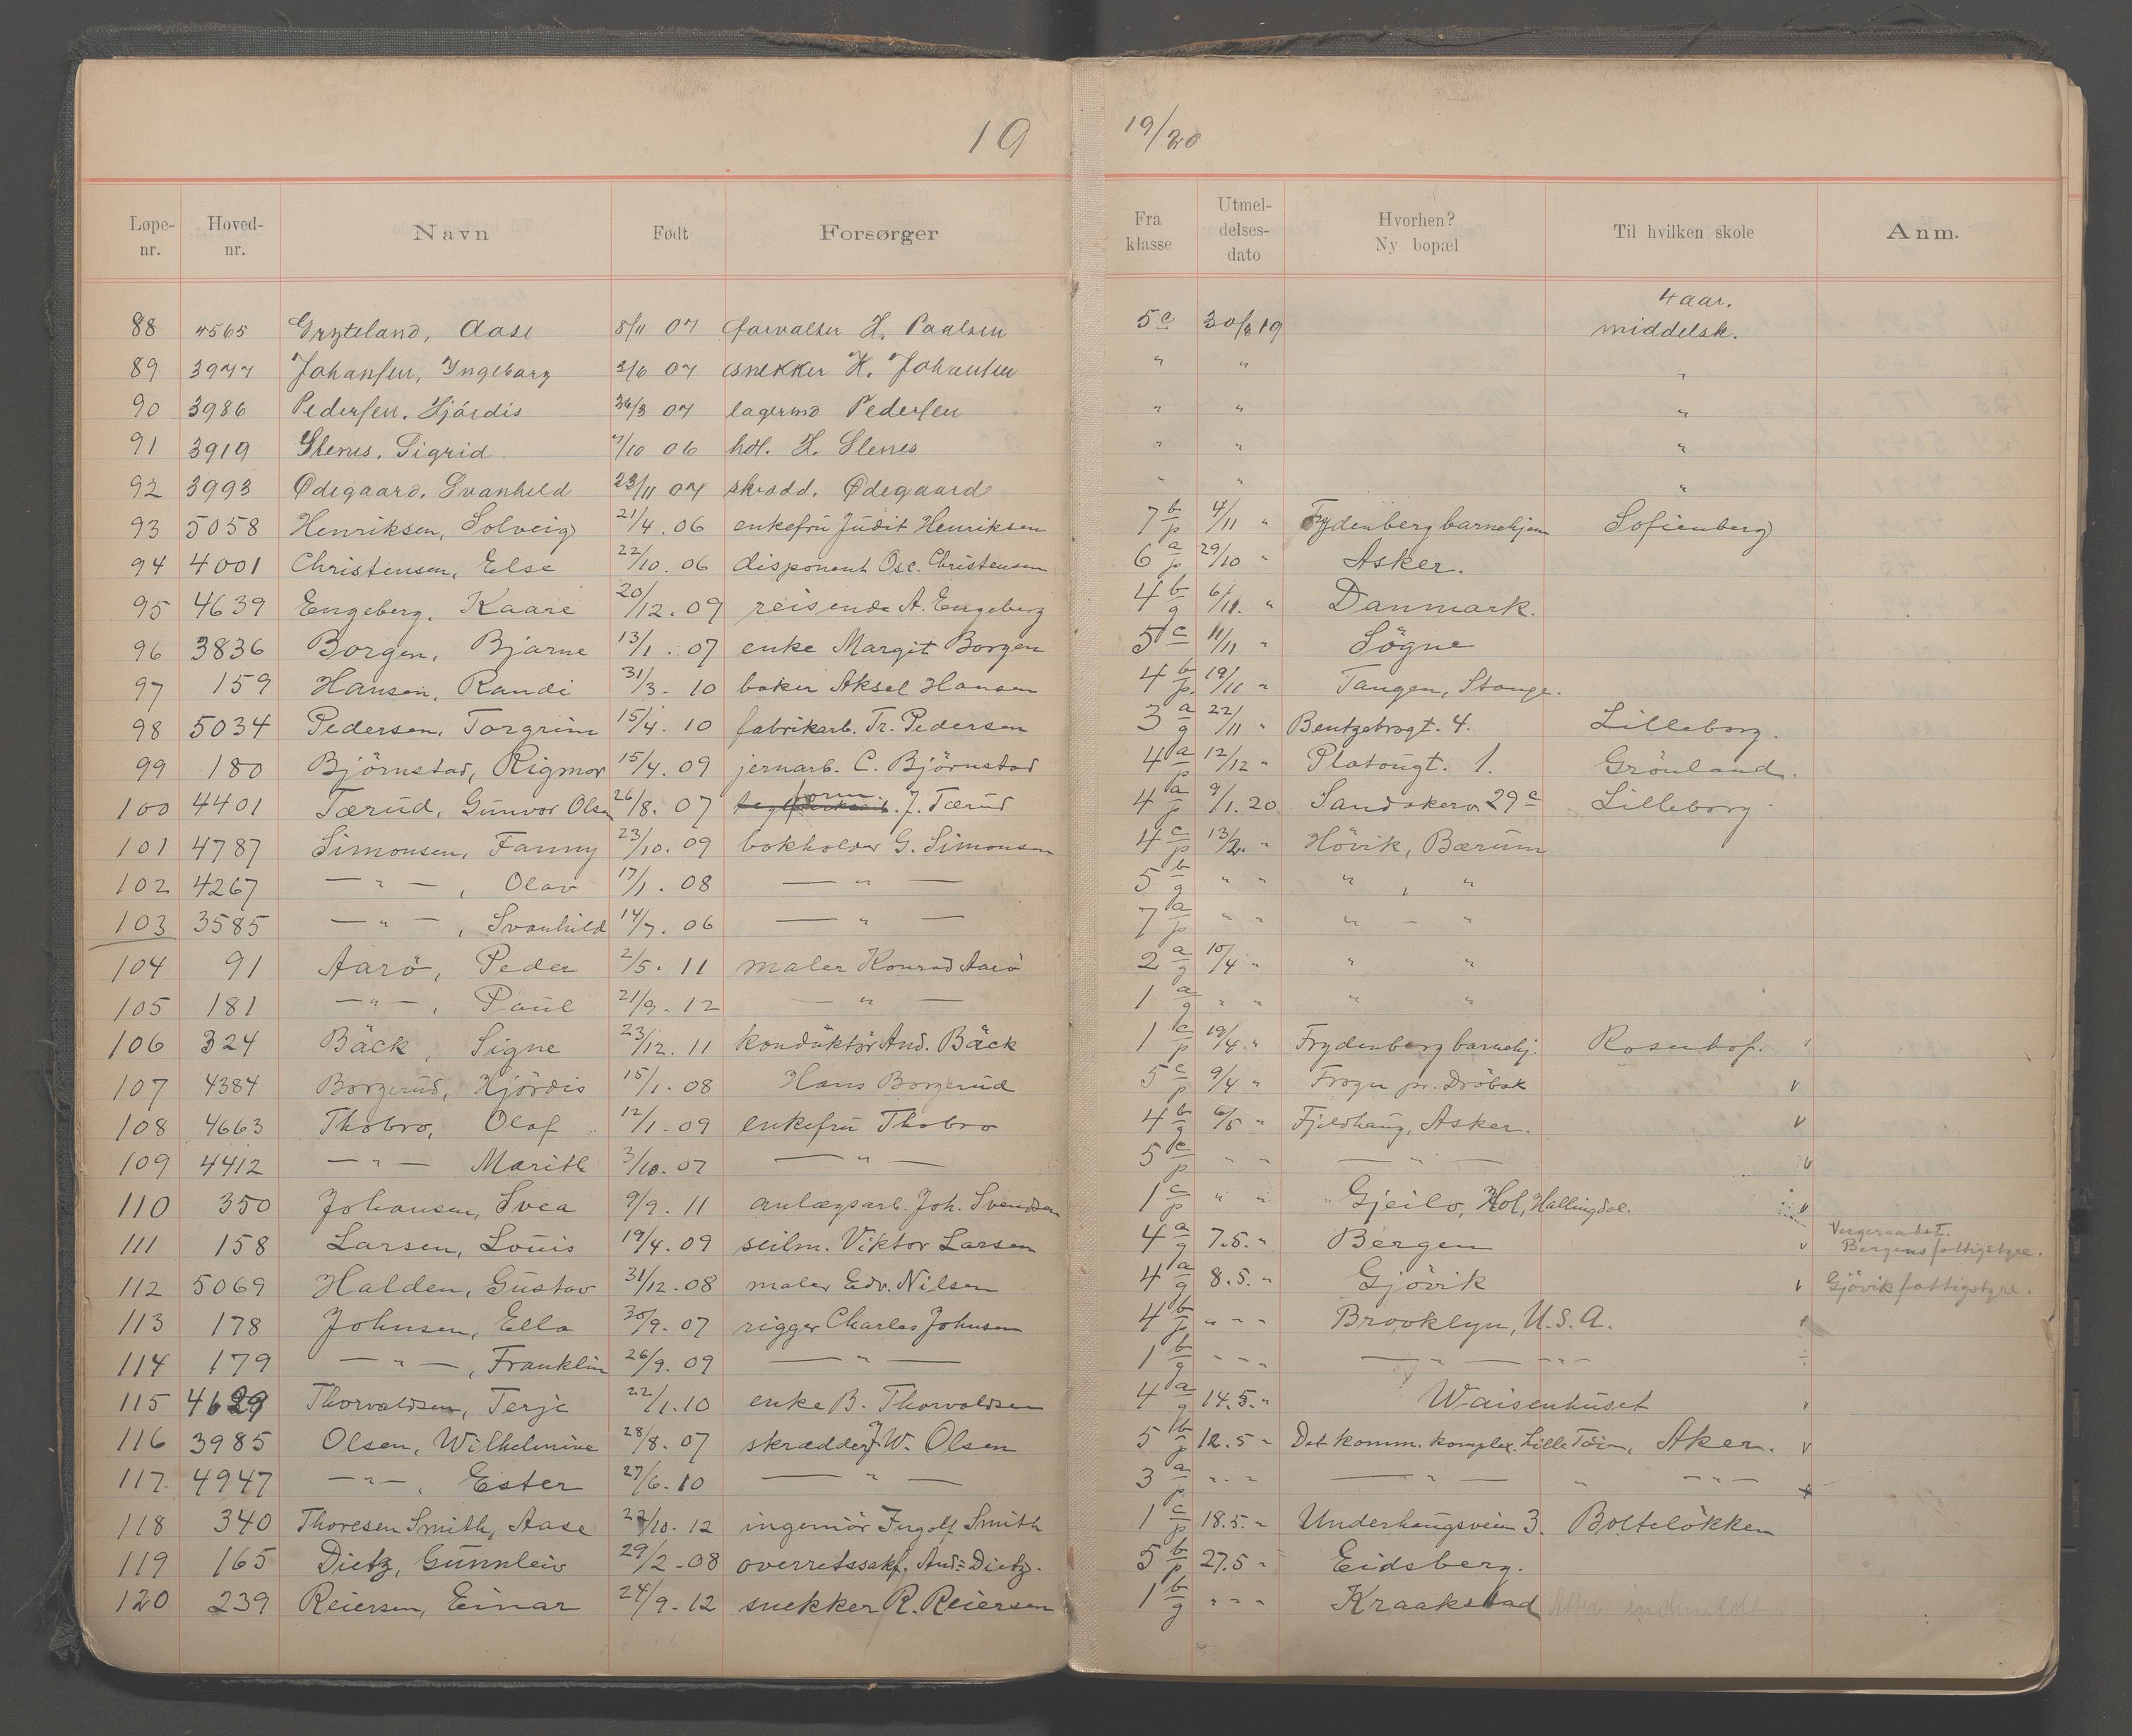 19 19/20
Løpe-nr. Hoved-nr. Navn Født Forsørger Fra klasse Utmel-delses-dato Hvorhen? Ny bopæl Til hvilken skole Anm.
4 aar.
88 4565 Gryteland, Aase 5/11 07 forvalter H. Paulsen 5c 30/8 19 middelsk.
89 3977 Johansen, Ingeborg 2/6 07 snekker K. Johansen " " "
90 3986 Pedersen, Hjördis 26/3 07 lagermd Pedersen " " "
91 3919 Slenes, Sigrid 7/10 06 hdl. H. Slenes " " "
92 3993 Ødegaard, Svanhild 23/11 07 skradd. Ødegaard " " "
93 5058 Henriksen, Solveig 21/4. 06 enkefru Judit Henriksen 7 b/p 4/11 " Frydenberg barnehjem Sofienberg
94 4001 Christensen, Else 22/10. 06 disponent Osc. Christensen 6 a/p 29/10 " Asker.
95 4639 Engeberg, Kaare 20/12. 09 reisende A. Engeberg 4 b/g 6/11. " Danmark.
96 3836 Borgen, Bjarne 13/1. 07 enke Margit Borgen 5 c 11/11 " Sögne
97 159 Hansen, Randi 31/3. 10 baker Aksel Hansen 4 b/p. 19/11 " Tangen, Stange.
98 5034 Pedersen, Torgrim 15/4. 10 fabrikarb. Tr. Pedersen 3 a/g 22/11 " Bentzebrogt. 4. Lilleborg.
99 180 Björnstad, Rigmor 15/4. 09 jernarb. C. Björnstad 4 a/p 12/12 " Platougt. 1. Grönland.
100 4401 Tærud, Gunvor Olsen 26/8. 07 form. J. Tærud 4 a/p 9/1. 20 Sandakerv. 29c Lilleborg.
101 4787 Simonsen, Fanny 23/10. 09 bokholder G. Simonsen 4 c/p 13/2. " Hövik, Bærum
102 4267 — " —, Olav 17/1. 08 — " — 5 b/g " " " , "
103 3585 — " —, Svanhild 14/7. 06 — " — 7 a/p " " " - "
104 91 Aarö, Peder 2/5. 11 maler Konrad Aarö 2 a/g 10/4 " " "
105 181 — " —, Paul 21/9. 12 — " — 1 a/g " " " "
106 324 Bäck, Signe 23/12. 11 konduktör And. Bäck 1 c/p 19/4 " Frydenberg barnehj. Rosenhof.
107 4384 Borgerud, Hjördis 15/1. 08 Hans Borgerud 5 c/p 9/4 " Frogn pr. Dröbak v
108 4663 Thobro, Olaf 12/1. 09 enkefru Thobro 4 b/g 6/5 " Fjeldhaug, Asker. v
109 4412 — " — Marith 3/10. 07 — " — 5 c/p " " — " — v
110 350 Johansen, Svea 9/9. 11 anlægsarb. Joh. Svendsen 1 c/p " " Gjeilo, Hol, Hallingdal. v
111 158 Larsen, Louis 19/4. 09 seilm. Viktor Larsen 4 a/g 7.5. " Bergen v Vergeraadet. Bergens fattigstyre.
112 5069 Halden, Gustav 31/12. 08 maler Edv. Nilsen 4 a/g 8.5. " Gjövik v Gjövik fattigstyre.
113 178 Johnsen, Ella 30/9. 07 rigger Charles Johnsen 4 b/p " " " Brooklyn, U.S.A.
114 179 — " —, Franklin 26/9. 09 — " — 1 b/g " " " — " — " "
115 4629 Thorvaldsen, Terje 22/1. 10 enke B. Thorvaldsen 4 a/g 14.5. " Waisenhuset
116 3985 Olsen, Wilhelmine 28/8. 07 skrædder J. W. Olsen 5 b/p 12.5 " Det komm. komplex. Lille Töien, Aker. v
117. 4947 — " —, Ester 27/6. 10 — " — 3 a/p. " " " — " — " — " —
118 340 Thoresen Smith, Aase 27/10. 12 ingeniör Ingolf Smith 1 c/p 18.5. " Underhaugsveien 3. Bolteløkken
119 165 Dietz, Gunnleiv 29/2 - 08 overretssakf. And. Dietz. 5 b/p 27.5 " Eidsberg.
120 239 Reiersen, Einar 24/9. 12 snekker R. Reiersen 1 b/g " " " Kraakstad Atter indmeldt